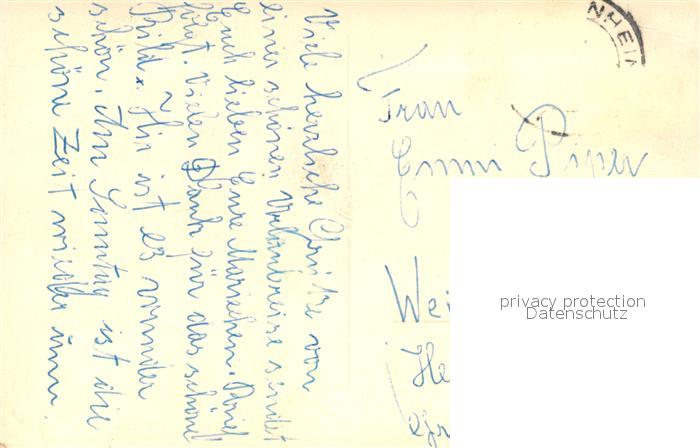 Viele herzliche Grüße von
einer schönen Urlaubreise sendet
Euch lieben Eure Mariechen. Brief
folgt. Vielen Dank für das schöne
Bild. Hir ist es wunder
schön. Am Sonntag ist die
schöne Zeit wieder um.
NHEIM
Frau
Emmi Piper
Wei
He
privacy protection
Datenschutz